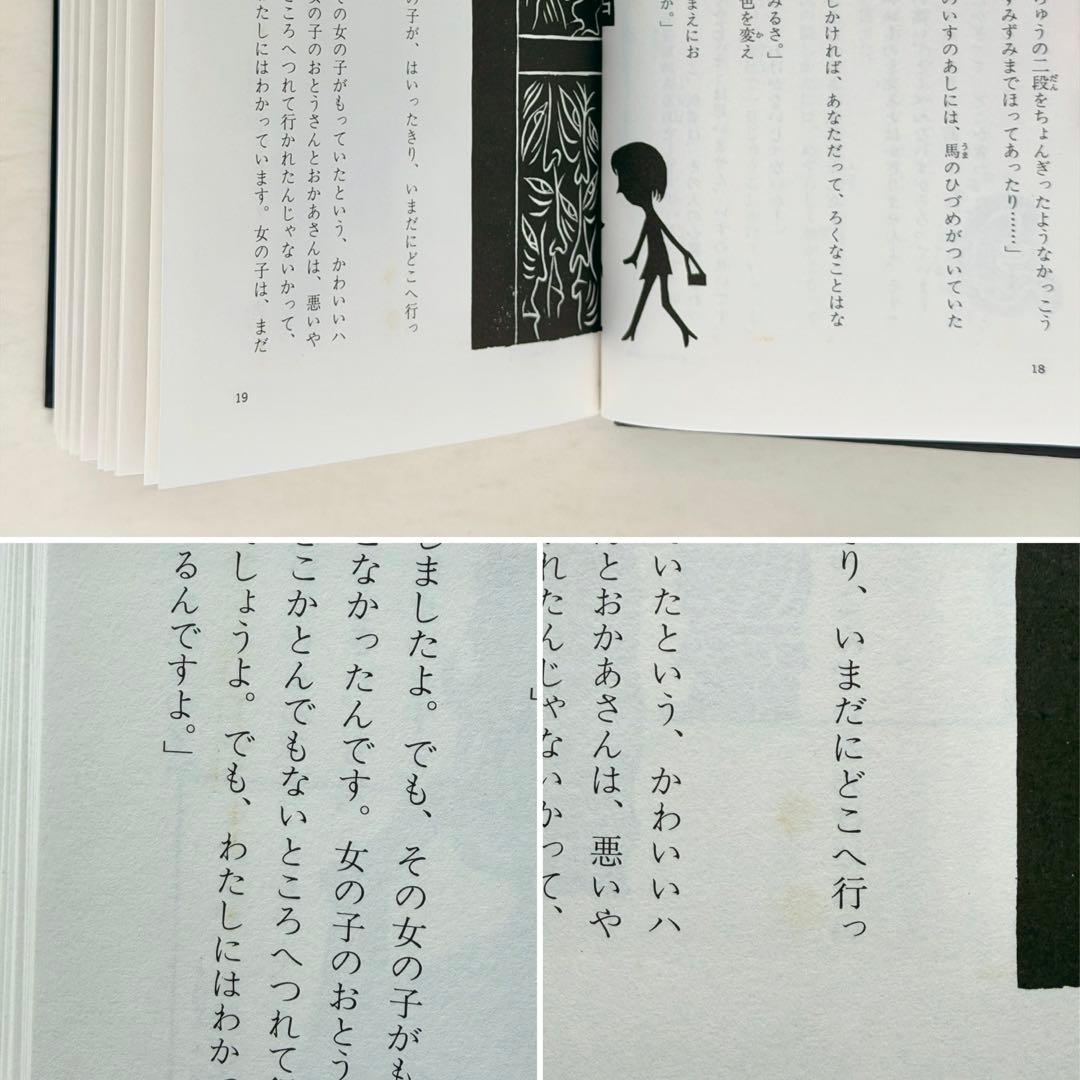 ちゅうの二段をちょんぎったようなかっこう
すみずみまでほってあったり……」
のいすのあしには、馬のひづめがついていた
しかければ、あなただって、ろくなことはな
みるさ。」
色を変え
まえにお
か。」
18
の子が、はいったきり、いまだにどこへ行っ
その女の子がもっていたという、かわいいハ
女の子のおとうさんとおかあさんは、悪いや
ところへつれて行かれたんじゃないかって、
たしにはわかっています。女の子は、まだ
19
しましたよ。でも、その女の子がも
となかったんです。女の子のおとう
どこかとんでもないところへつれて
でしょうよ。でも、わたしにはわかっ
るんですよ。」
きり、いまだにどこへ行っ
ていたという、かわいいハ
んとおかあさんは、悪いや
れたんじゃないかって、